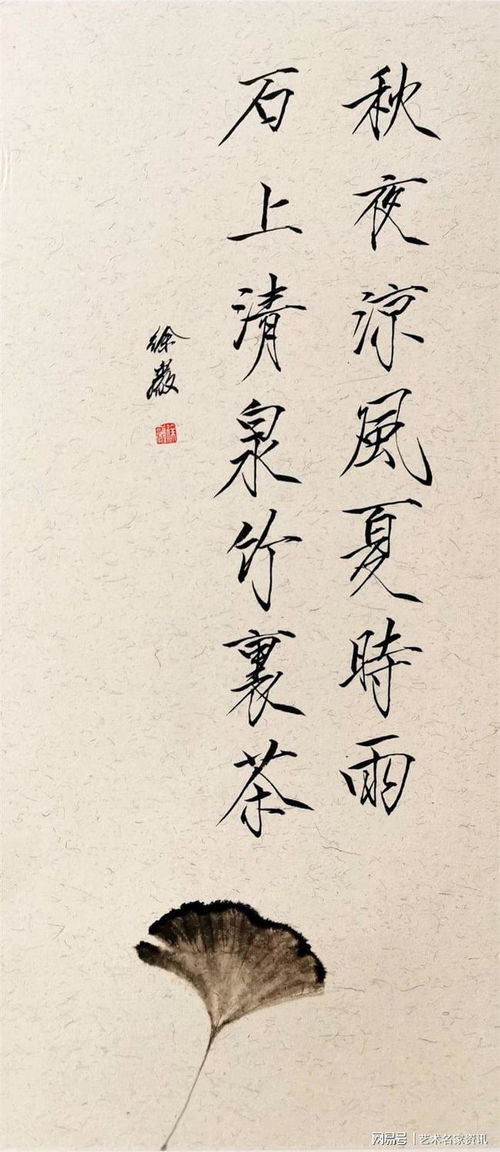 秋夜涼風夏時雨
石上清泉竹裏茶
徐
网易号 | 艺术名家资讯